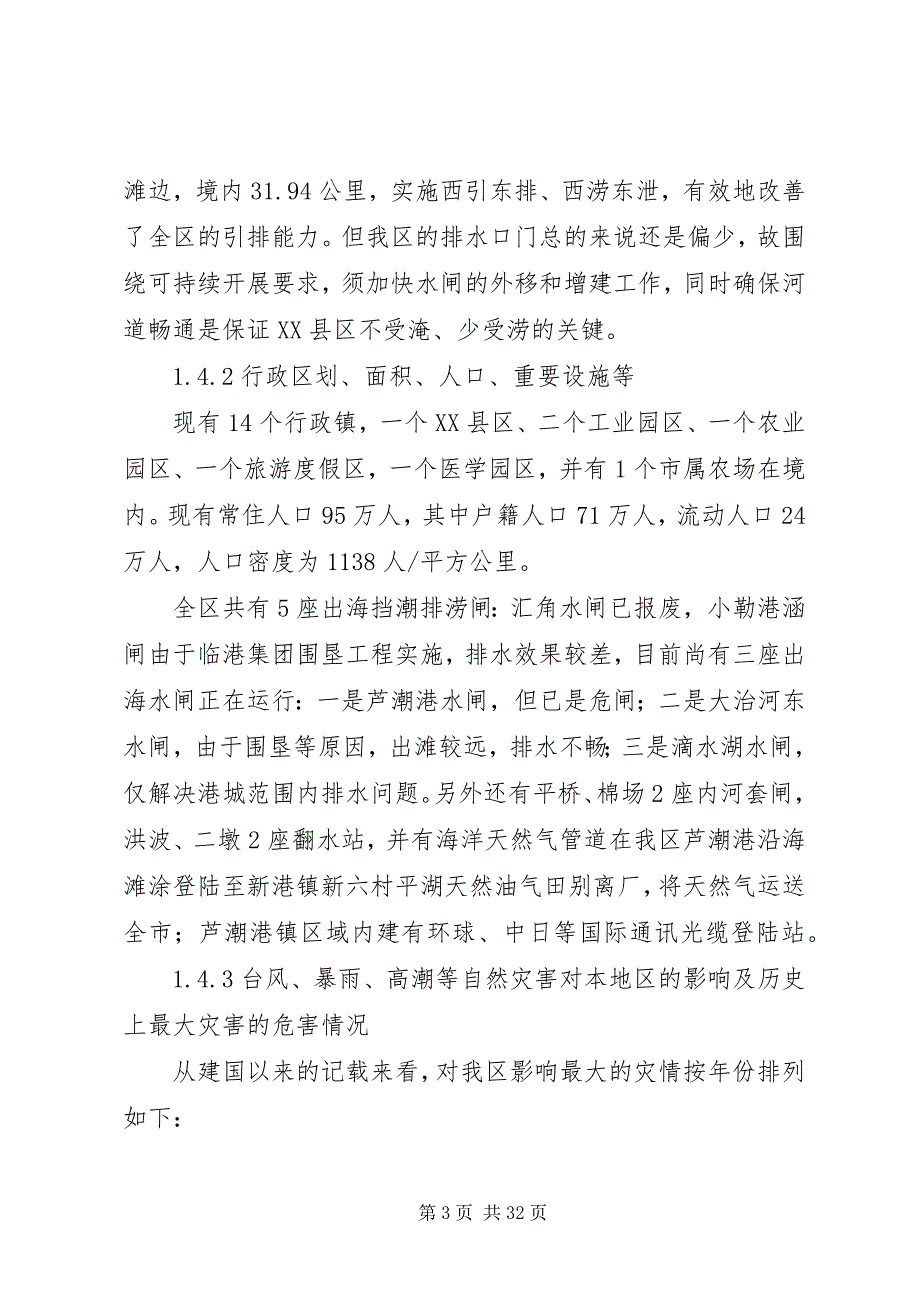 滩边，境内 31.94 公里，实施西引东排、西涝东泄，有效地改善
了全区的引排能力。但我区的排水口门总的来说还是偏少，故围
绕可持续开展要求，须加快水闸的外移和增建工作，同时确保河
道畅通是保证 XX 县区不受淹、少受涝的关键。
1.4.2 行政区划、面积、人口、重要设施等
现有 14 个行政镇，一个 XX 县区、二个工业园区、一个农业
园区、一个旅游度假区，一个医学园区，并有 1 个市属农场在境
内。现有常住人口 95 万人，其中户籍人口 71 万人，流动人口 24
万人，人口密度为 1138 人/平方公里。
全区共有 5 座出海挡潮排涝闸：汇角水闸已报废，小勒港涵
闸由于临港集团围垦工程实施，排水效果较差，目前尚有三座出
海水闸正在运行：一是芦潮港水闸，但已是危闸；二是大治河东
水闸，由于围垦等原因，出滩较远，排水不畅；三是滴水湖水闸，
仅解决港城范围内排水问题。另外还有平桥、棉场 2 座内河套闸，
洪波、二墩 2 座翻水站，并有海洋天然气管道在我区芦潮港沿海
滩涂登陆至新港镇新六村平湖天然油气田别离厂，将天然气运送
全市；芦潮港镇区域内建有环球、中日等国际通讯光缆登陆站。
1.4.3 台风、暴雨、高潮等自然灾害对本地区的影响及历史
上最大灾害的危害情况
从建国以来的记载来看，对我区影响最大的灾情按年份排列
如下：
第 3 页 共 32 页